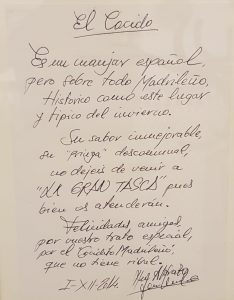 El Cocido
Es un manjar español,
pero sobre todo Madrileño,
Histórico como este lugar
y típico del invierno.
Su sabor inmejorable,
su "pringá" descomunal,
no dejeis de venir a
"LA GRAN TASCA" pues
bien os atenderán.
Felicidades amigos,
por vuestro trato especial,
por el Cocidito Madrileño,
que no tiene rival.